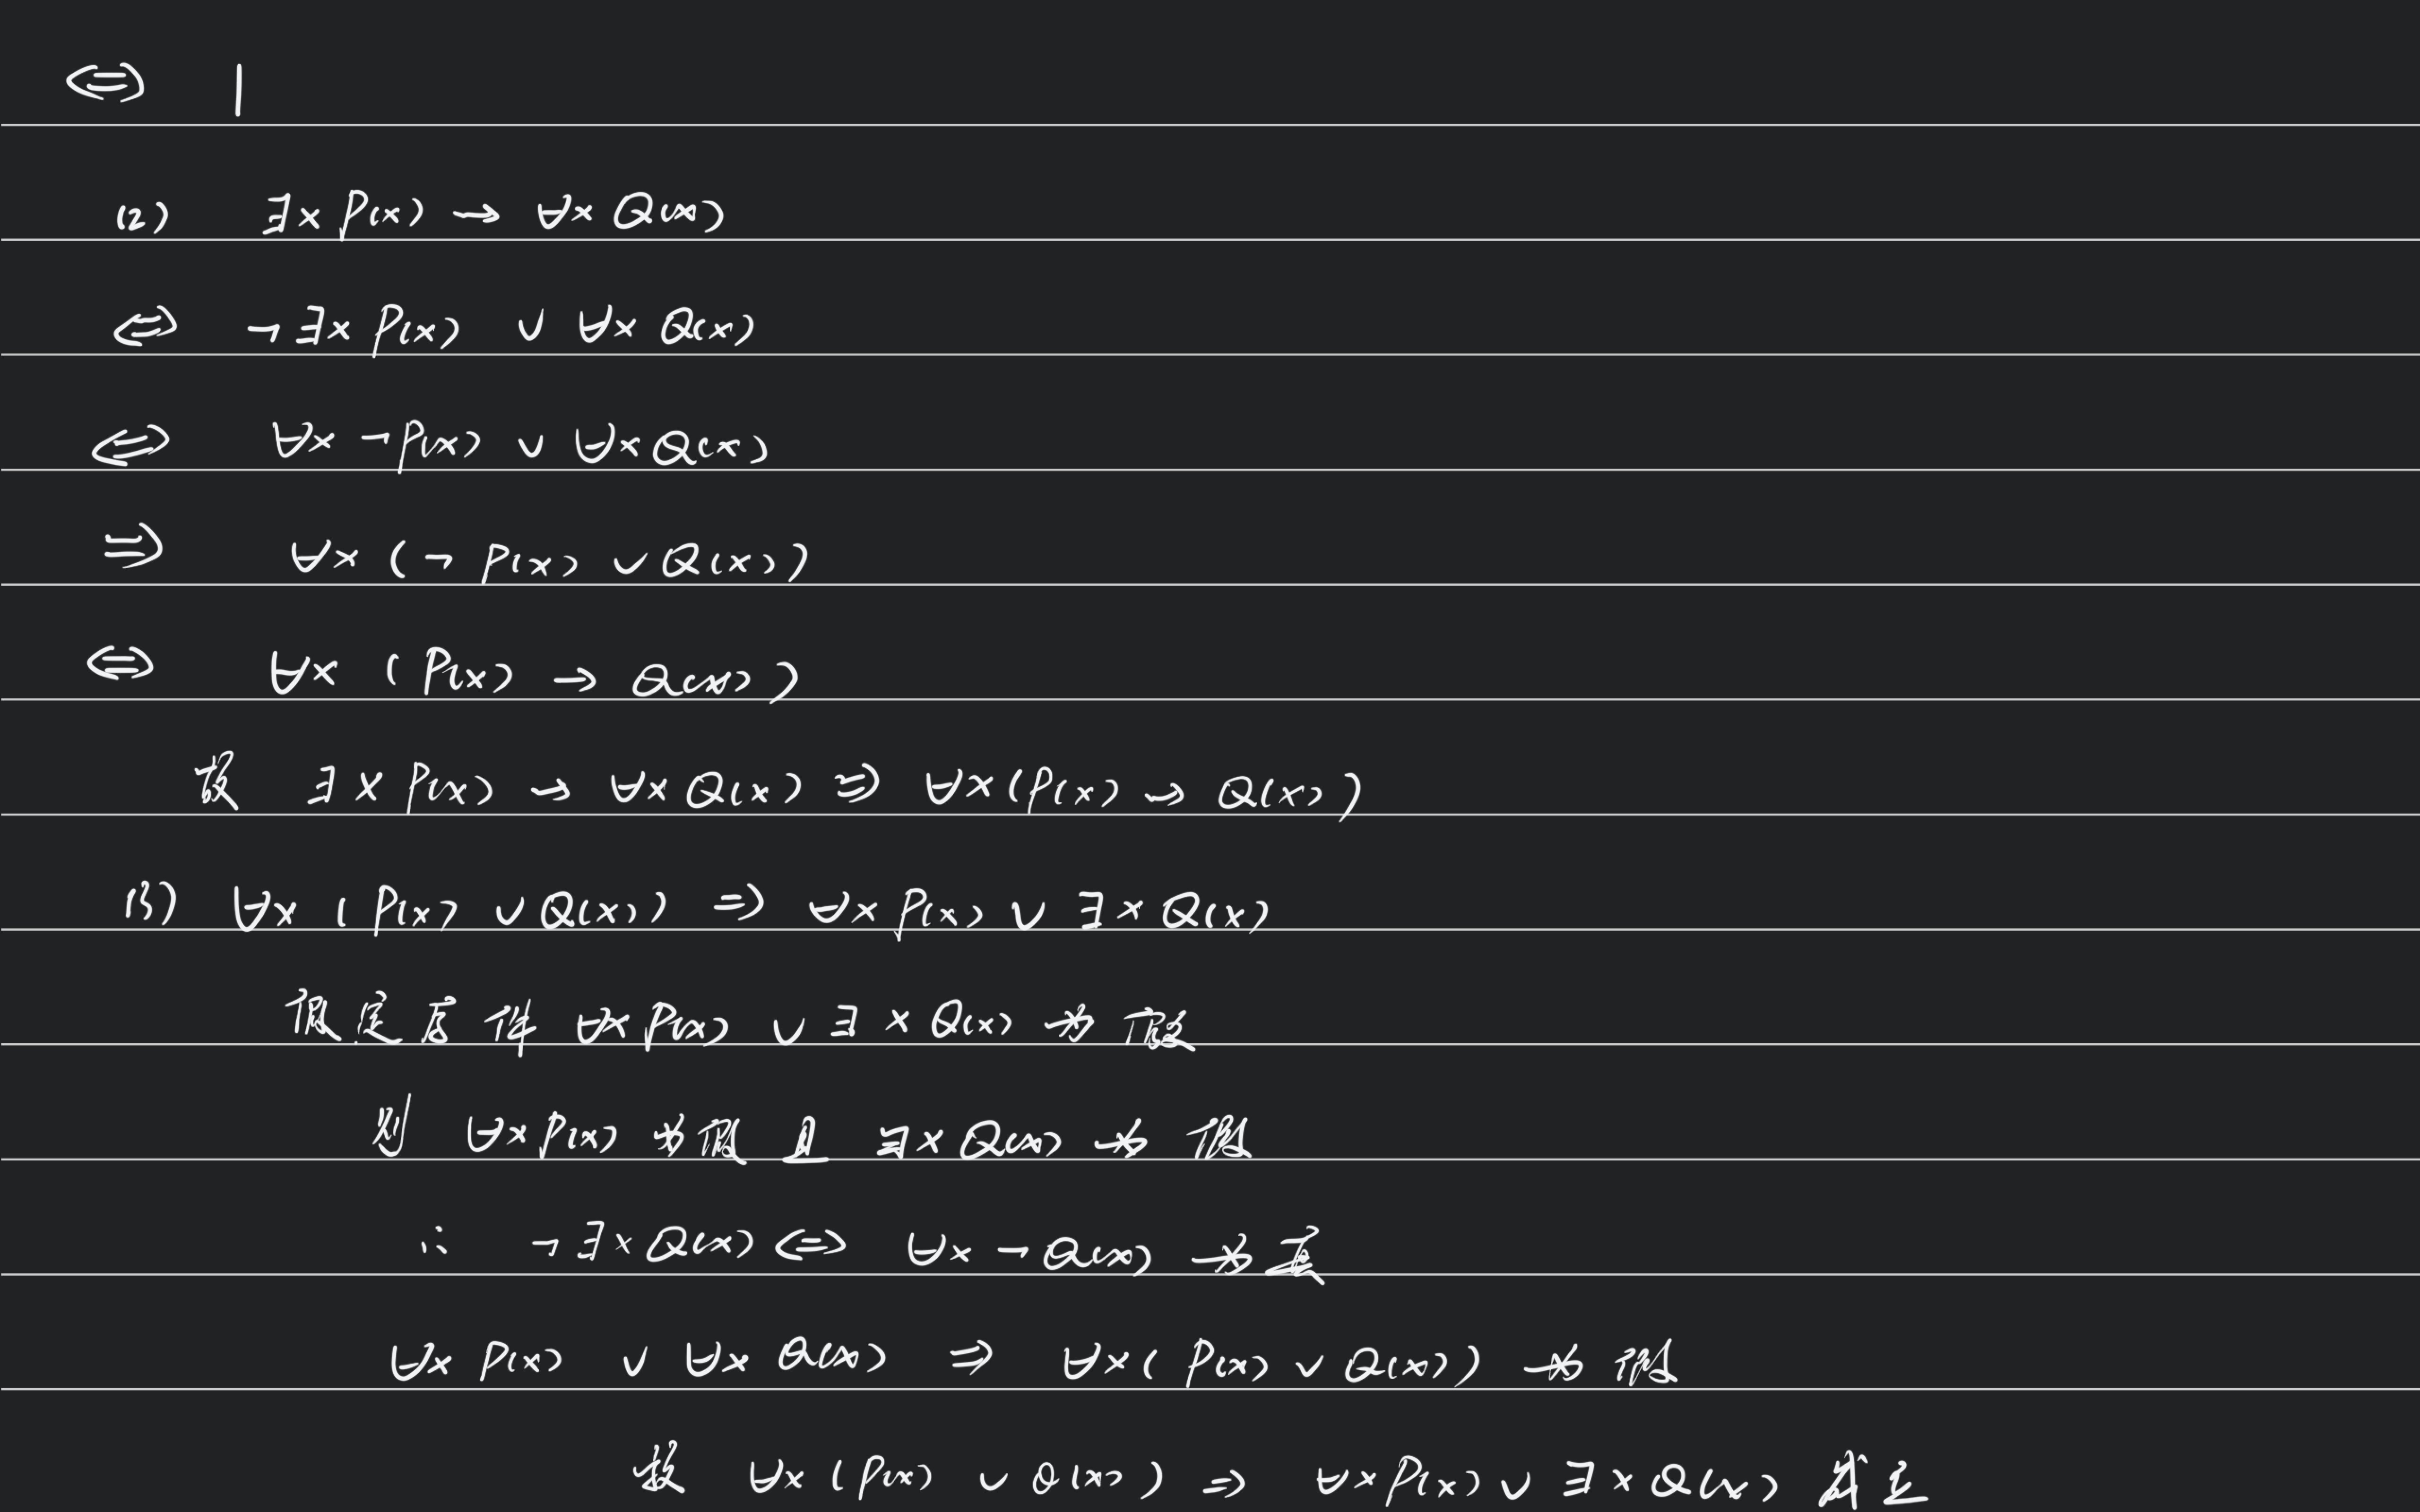 ⇔ 1
(2) ∃x P(x) → ∀x Q(x)
⇔ ¬∃x P(x) ∨ ∀x Q(x)
⇔ ∀x ¬P(x) ∨ ∀x Q(x)
⇒ ∀x (¬P(x) ∨ Q(x))
⇔ ∀x (P(x) → Q(x))
故 ∃x P(x) → ∀x Q(x) ⇒ ∀x (P(x) → Q(x))
(3) ∀x (P(x) ∨ Q(x)) ⇒ ∀x P(x) ∨ ∃x Q(x)
假定后件 ∀x P(x) ∨ ∃x Q(x) 为假
则 ∀x P(x) 为假 且 ∃x Q(x) 为假
∴ ¬∃x Q(x) ⇔ ∀x ¬Q(x) 为真
∀x P(x) ∨ ∀x Q(x) ⇒ ∀x (P(x) ∨ Q(x)) 为假
故 ∀x (P(x) ∨ Q(x)) ⇒ ∀x P(x) ∨ ∃x Q(x) 成立